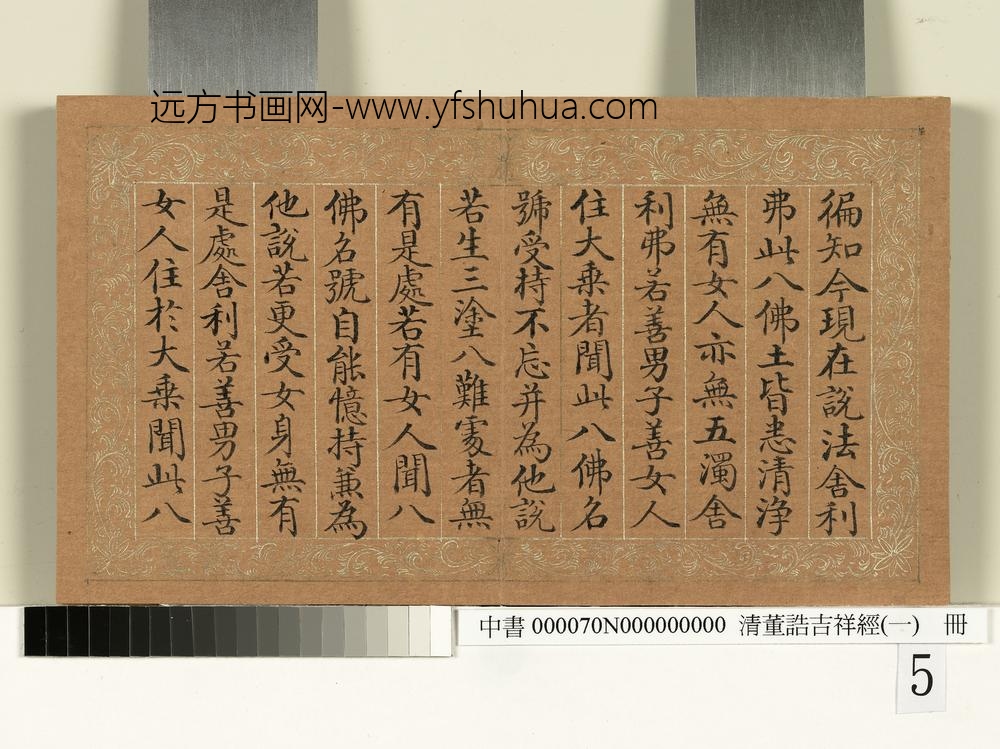 远方书画网-www.yfshuhua.com
徧知今現在說法舍利
弗此八佛土皆悉清淨
無有女人亦無五濁舍
利弗若善男子善女人
住大乗者聞此八佛名
號受持不忘并為他說
若生三塗八難處者無
有是處若有女人聞八
佛名號自能憶持兼為
他說若更受女身無有
是處舍利若善男子善
女人住於大乗聞此八
中書 000070N000000000 清董誥吉祥經(一) 冊
5